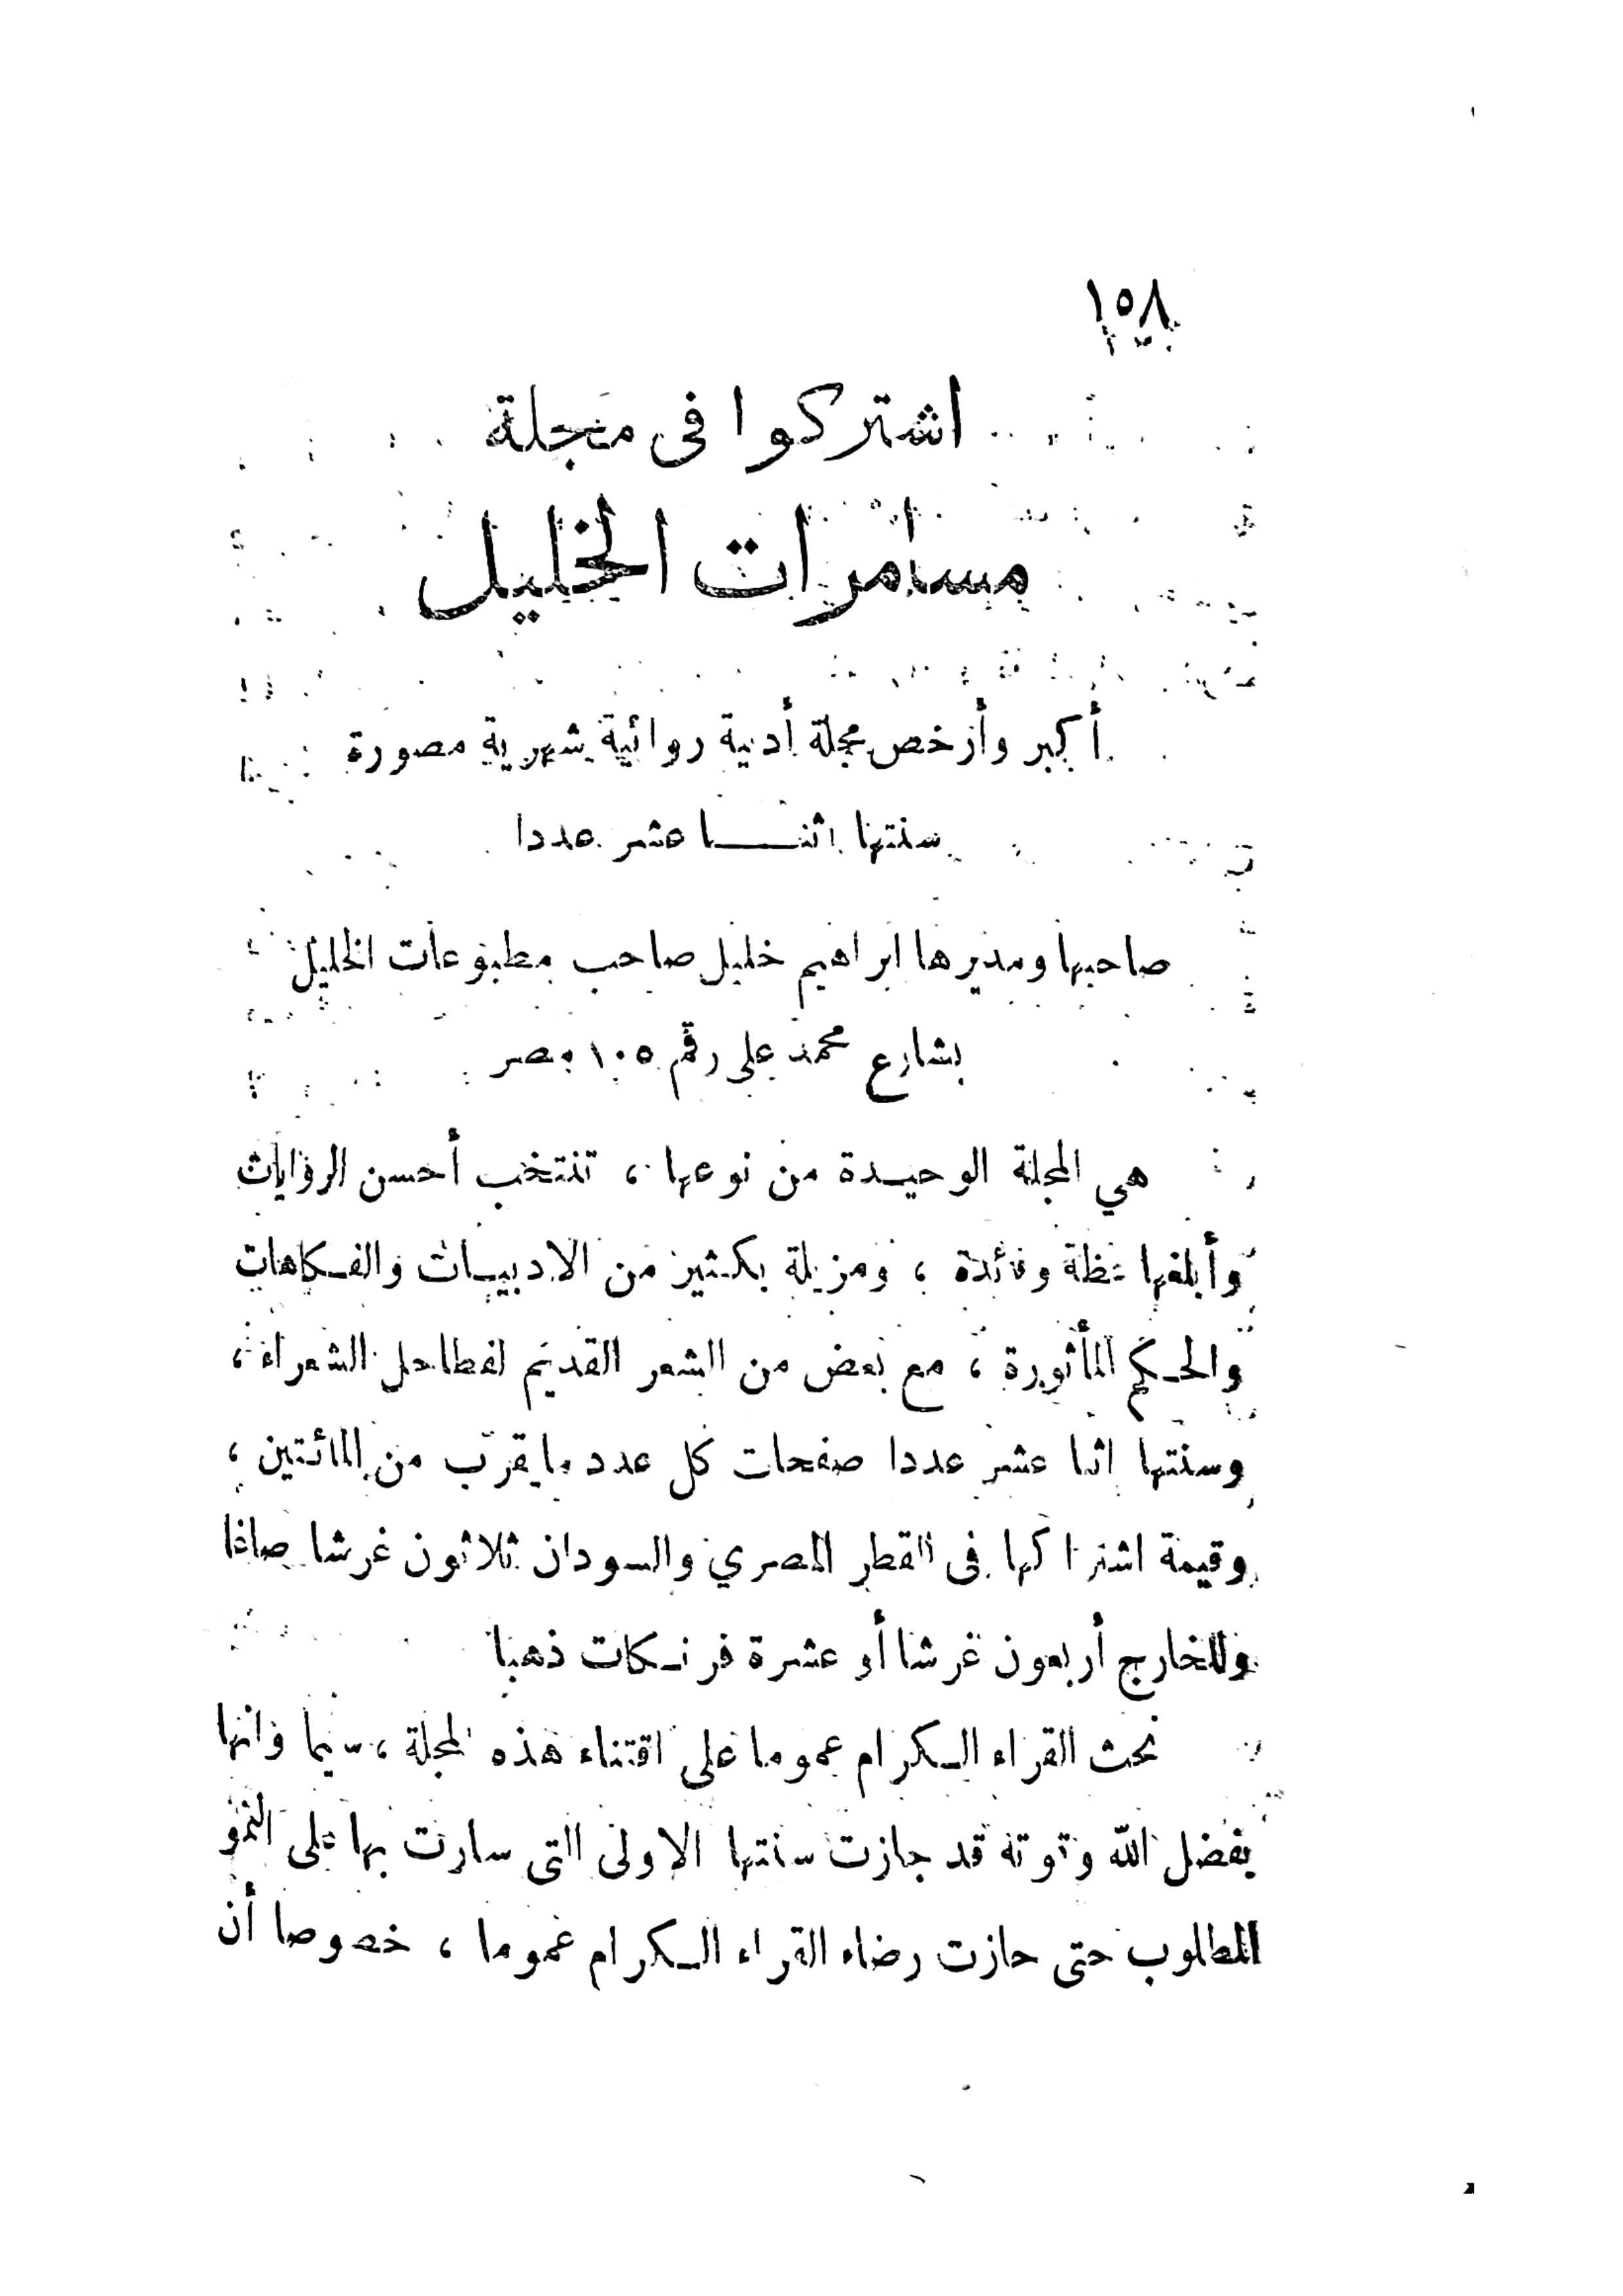 ١٥٨
اشتركوا فى مجلة
مسامرات الخليل
أكبر وأرخص مجلة أدبية روائية شهرية مصورة
سنتها اثنـــا عشر عددا
صاحبها ومديرها ابراهيم خليل صاحب مطبوعات الخليل
بشارع محمد على رقم ١٠٥ بمصر
هي المجلة الوحيدة من نوعها ، تنتخب أحسن الروايات
وأبلغها عظة وفائدة ، ومزيلة بكثير من الادبيات والفكاهات
والحكم المأثورة ، مع بعض من الشعر القديم لفطاحل الشعراء ،
وسنتها اثنا عشر عددا صفحات كل عدد ما يقرب من المائتين ،
وقيمة اشتراكها فى القطر المصري والسودان ثلاثون غرشا صاغا
وللخارج أربعون غرشا أو عشرة فرنكات ذهبا
نحث القراء الكرام عموما على اقتناء هذه المجلة ، سيما وانها
بفضل الله وقوته قد جازت سنتها الاولى التى سارت بها على النمو
المطلوب حتى حازت رضاء القراء الكرام عموما ، خصوصا أن